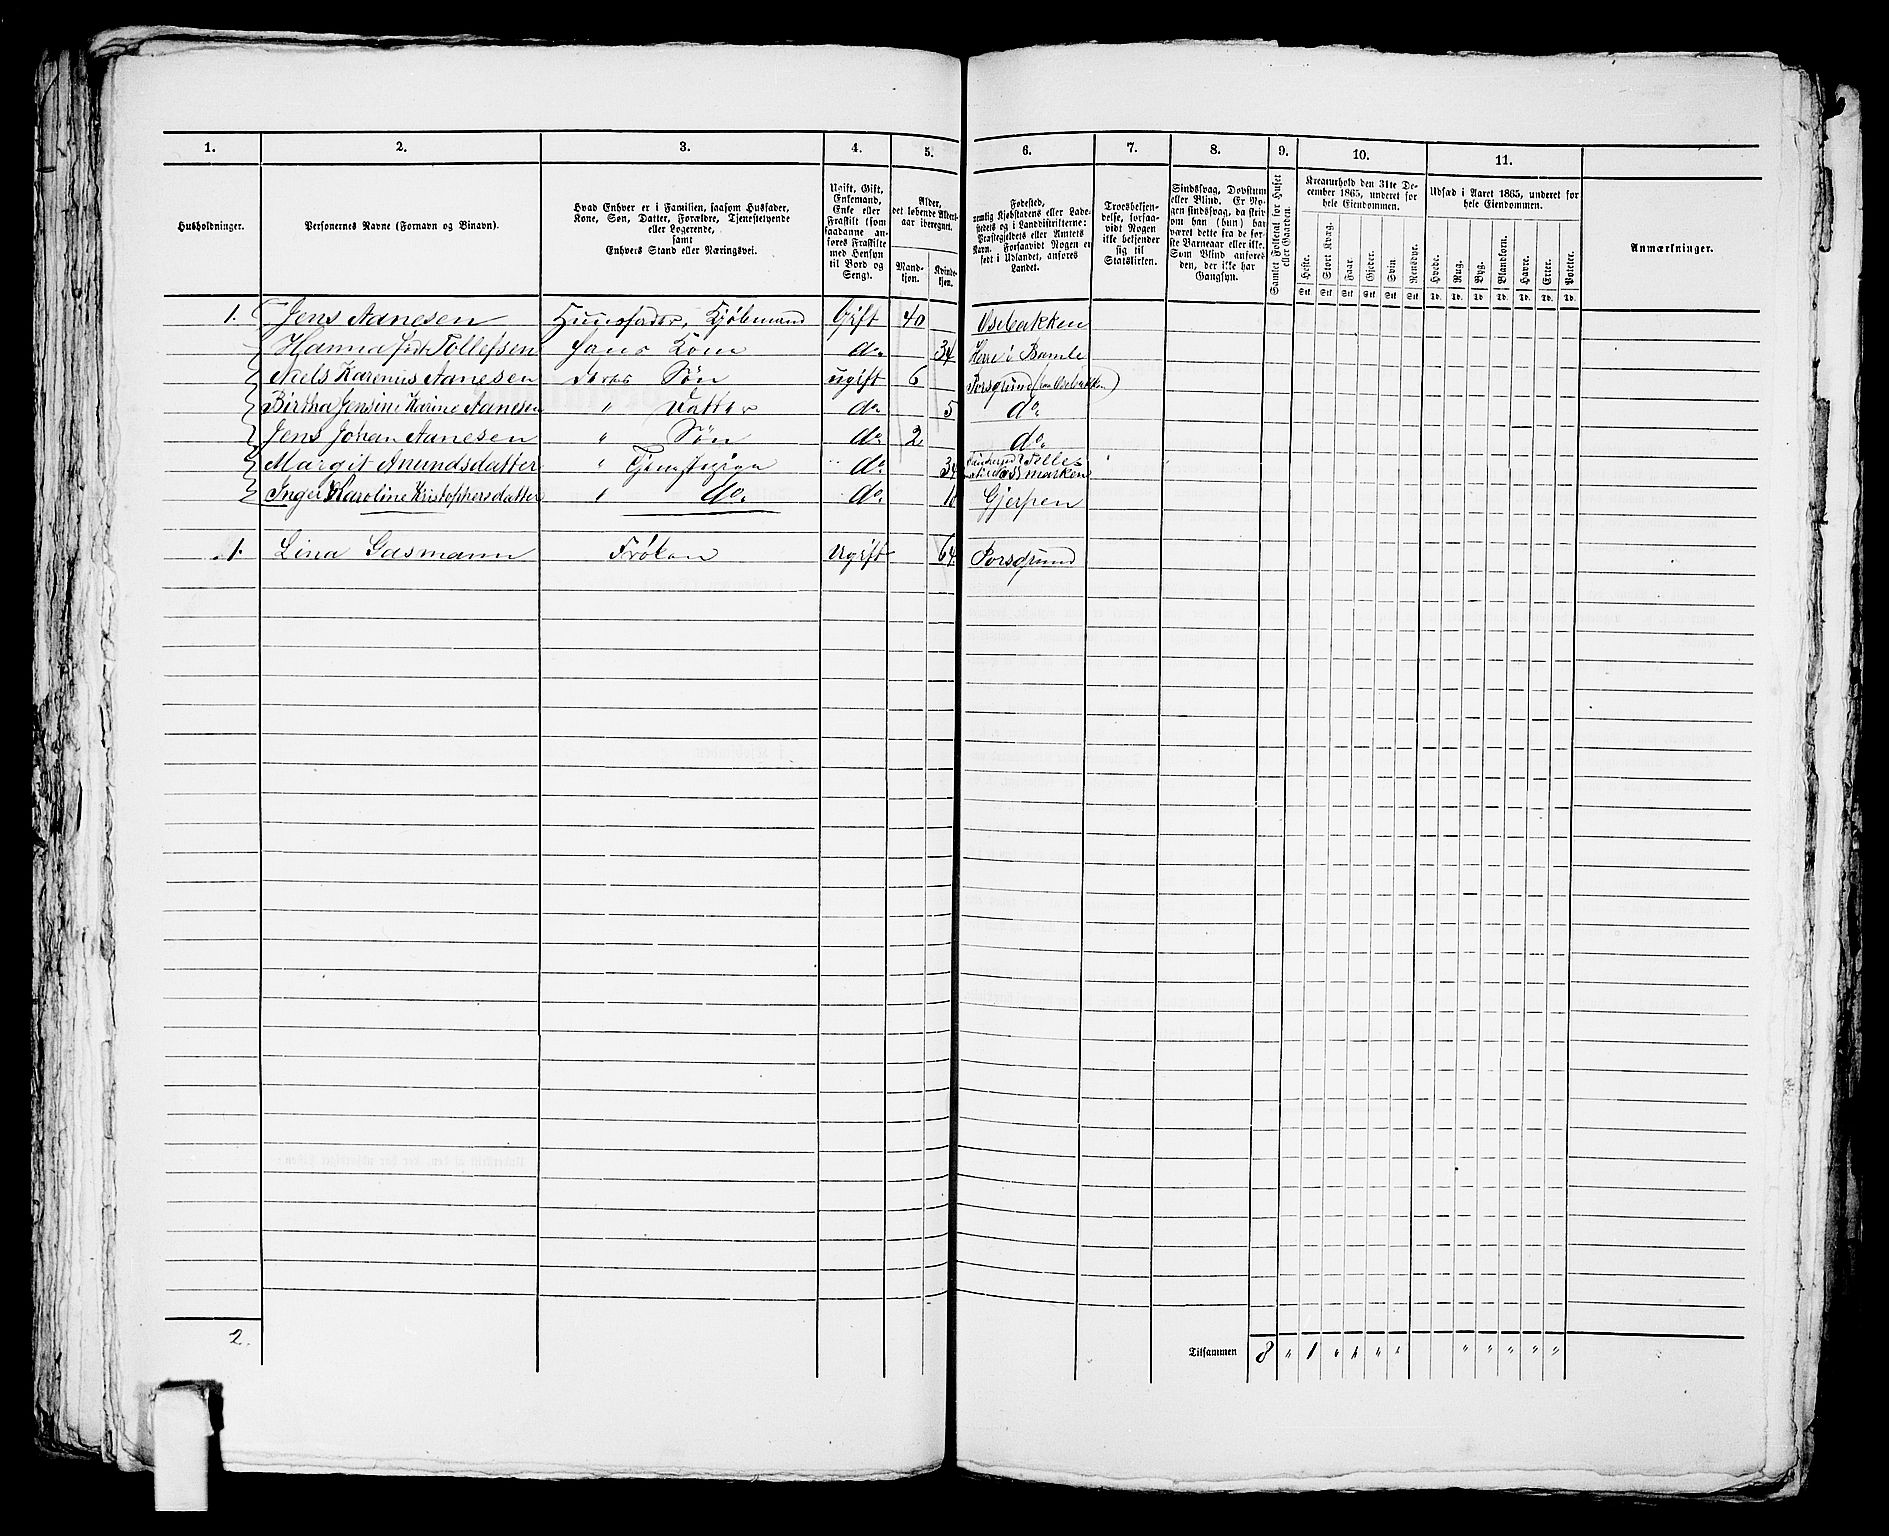 1. 2. 3. 4. 5. 6. 7. 8. 9. 10. 11.
Husholdninger.
Personernes Navne (Fornavn og Binavn).
Hvad Enhver er i Familien, saasom Husfader,
Kone, Søn, Datter, Forældre, Tjenestetyende
eller Logerende,
samt
Enhvers Stand eller Næringsvei.
Ugift, Gift,
Enkemand,
Enke eller
Fraskilt (som
saadanne an-
føres Fraskilte
med Hensyn
til Bord og
Seng).
Alder,
det løbende Alders-
aar iberegnet.
Mand-
kjøn.
Kvinde-
kjøn.
Fødested,
nemlig Kjøbstadens eller Lade-
stedets og i Landdistrikterne:
Præstegjeldets eller Amtets
Navn. Forsaavidt Nogen er
født i Udlandet, anføres
Landet.
Troesbekjen-
delse, forsaa-
vidt Nogen
ikke bekjender
sig til
Statskirken.
Sindssvag, Døvstum
eller Blind. Er No-
gen sindssvag, da skri-
ves om han (hun) har
været dette fra de før-
ste Barneaar eller ikke.
Som Blind anføres
den, der ikke har
Gangsyn.
Samlet Folketal for Huset
eller Gaarden.
Kreaturhold den 31te De-
cember 1865, underet for
hele Eiendommen.
Heste. Stort Kvæg. Faar. Gjeder. Svin. Rensdyr.
Stk Stk Stk Stk Stk Stk
Udsæd i Aaret 1865, underet for
hele Eiendommen.
Hvede. Rug. Byg. Blandkorn. Havre. Erter. Poteter.
Td. Td. Td. Td. Td. Td. Td.
Anmærkninger.
1. Jens Aanesen Huusfader, Kjøbmand Gift 40 Osebakken
Hanna født Tollefsen hans Kone do. 34 Herre i Bamle
Niels Karenius Aanesen deres Søn ugift 6 Porsgrund (paa Osebakken)
Birtha Jensine Karine Aanesen " Datter do. 5 do.
Jens Johan Aanesen " Søn do. 2 do.
Margit Anundsdatter " Tjenestepige do. 34
Inger Karoline Kristophersdatter " do. do. Gjerpen
1. Lina Gasmann Frøken Ugift 64 Porsgrund
2.
Tilsammen 8 " 1 " " " " " " " " "